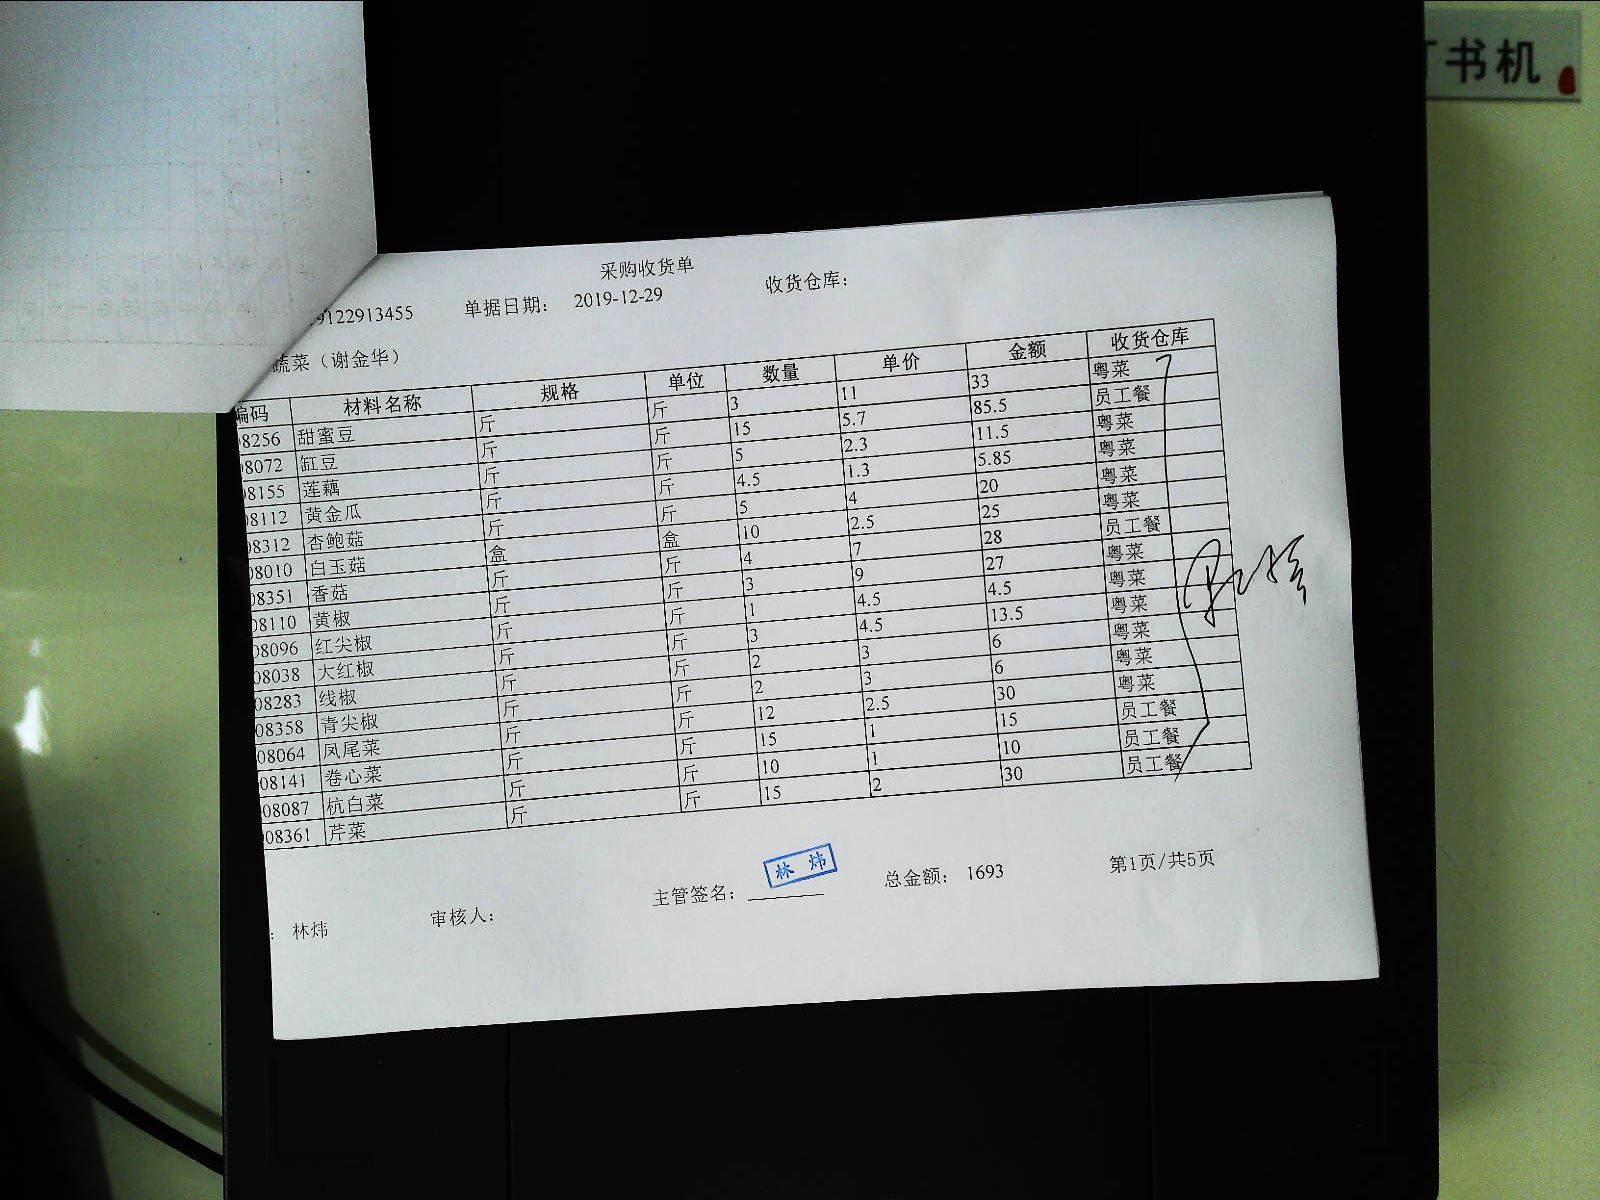 订书机
采购收货单
9122913455 单据日期： 2019-12-29 收货仓库：
蔬菜（谢金华）
编码 材料名称 规格 单位 数量 单价 金额 收货仓库
08256 甜蜜豆 斤 斤 3 11 33 粤菜
08072 缸豆 斤 斤 15 5.7 85.5 员工餐
08155 莲藕 斤 斤 5 2.3 11.5 粤菜
08112 黄金瓜 斤 斤 4.5 1.3 5.85 粤菜
08312 杏鲍菇 斤 斤 5 4 20 粤菜
08010 白玉菇 盒 盒 10 2.5 25 粤菜
08351 香菇 斤 斤 4 7 28 员工餐
08110 黄椒 斤 斤 3 9 27 粤菜
08096 红尖椒 斤 斤 1 4.5 4.5 粤菜
08038 大红椒 斤 斤 3 4.5 13.5 粤菜
08283 线椒 斤 斤 2 3 6 粤菜
08358 青尖椒 斤 斤 2 3 6 粤菜
08064 凤尾菜 斤 斤 12 2.5 30 粤菜
08141 卷心菜 斤 斤 15 1 15 员工餐
08087 杭白菜 斤 斤 10 1 10 员工餐
08361 芹菜 斤 斤 15 2 30 员工餐
：林炜 审核人： 主管签名： 林炜 总金额： 1693 第1页/共5页